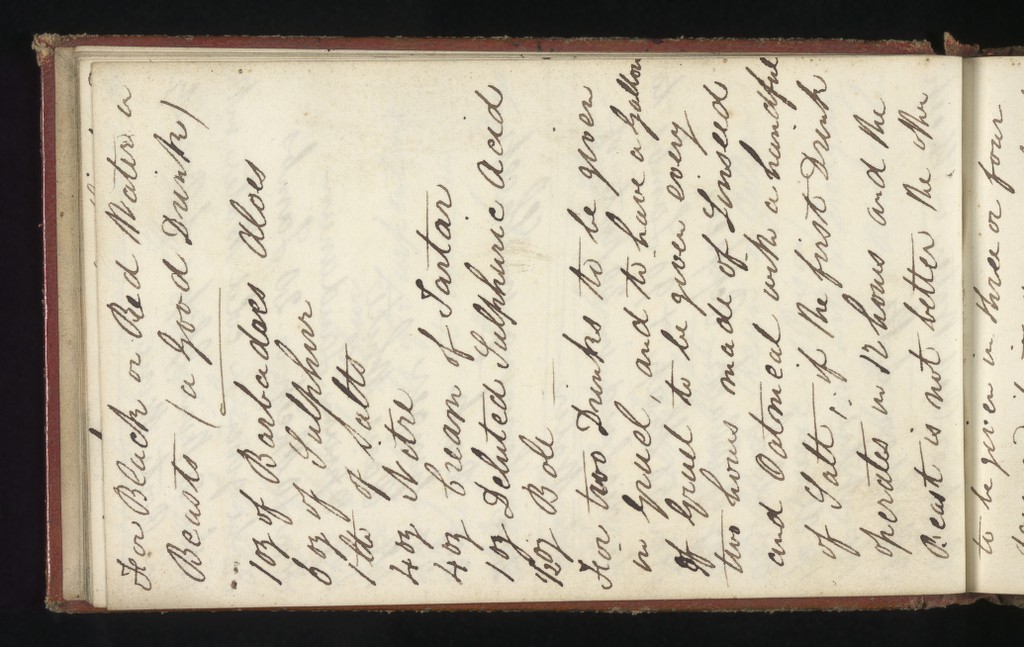 For Black or Red Water in a
Beasts (a Good Drink)
1 oz of Barbadoes Aloes
6 oz of Sulphur
1 lb of Salts
4 oz Nitre
4 oz Cream of Tartar
1 oz Deluted Sulphuric Acid
½ oz Bole
For two Drinks to be given
in Gruel, and to have a gallon
of Gruel to be given every
two hours made of Linseed
and Oatmeal with a handful
of Salt; if the first Drink
operates in 12 hours and the
Beast is not better the other
to be given in three or four